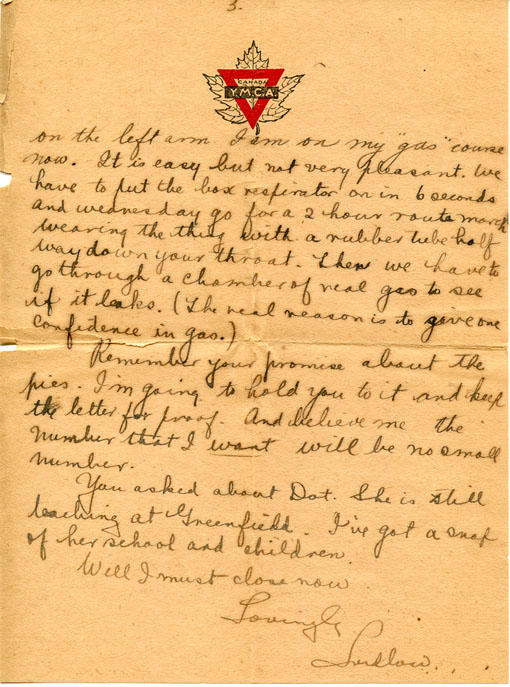 3.
CANADA
Y.M.C.A.
on the left arm I am on my "gas" course
now. It is easy but not very pleasant. We
have to put the box respirator on in 6 seconds
and wednesday go for a 2 hour route march
wearing the thing with a rubber tube half
way down your throat. Then we have to
go through a chamber of real gas to see
if it leaks. (The real reason is to give one
confidence in gas.)
Remember your promise about the
pies. I'm going to hold you to it and keep
the letter for proof. And believe me the
number that I want will be no small
number.
You asked about Dot. She is still
teaching at Greenfield. I've got a snap
of her school and children.
Well I must close now
Lovingly
Ludlow.